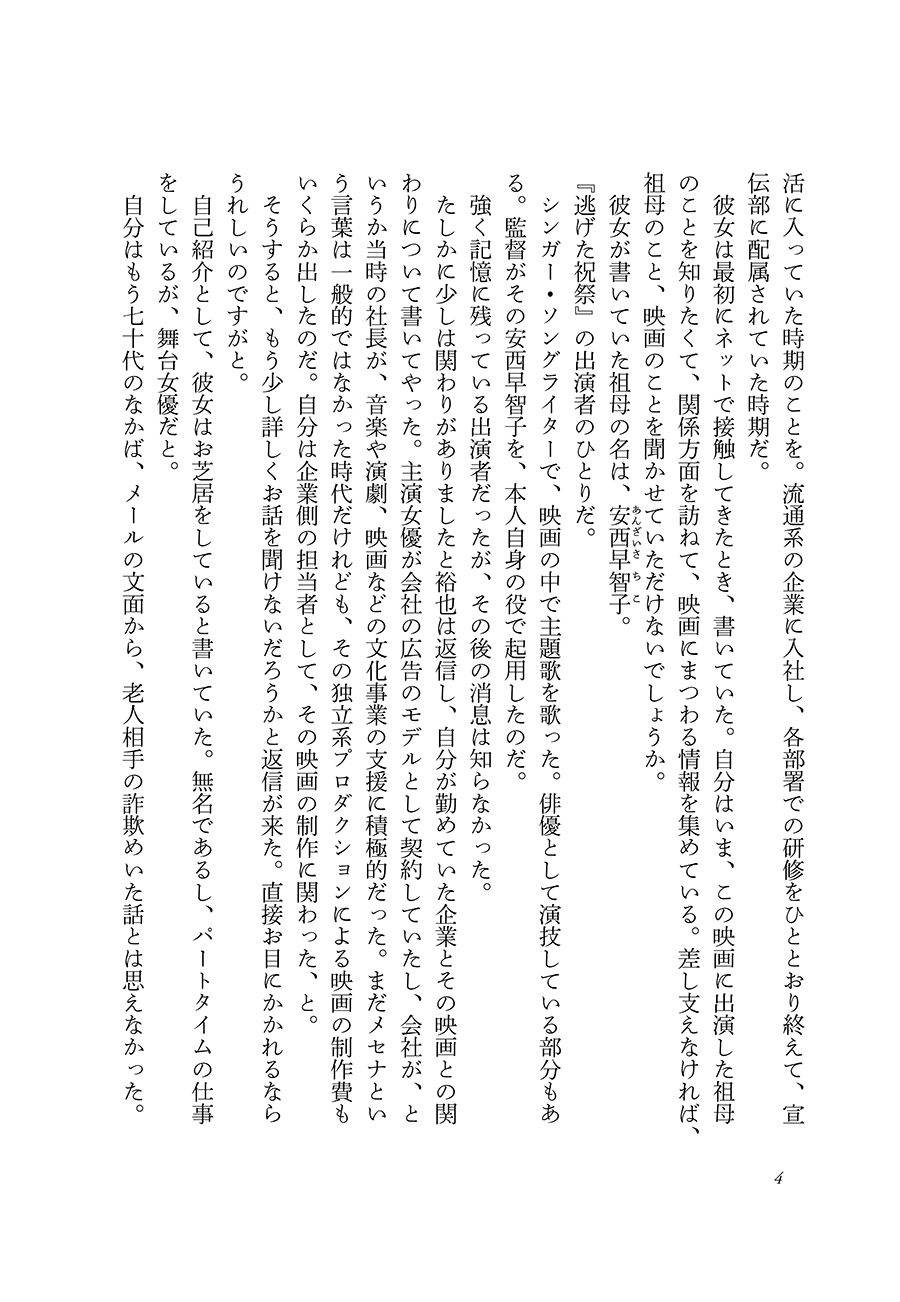 活に入っていた時期のことを。流通系の企業に入社し、各部署での研修をひととおり終えて、宣
伝部に配属されていた時期だ。
彼女は最初にネットで接触してきたとき、書いていた。自分はいま、この映画に出演した祖母
のことを知りたくて、関係方面を訪ねて、映画にまつわる情報を集めている。差し支えなければ、
祖母のこと、映画のことを聞かせていただけないでしょうか。
彼女が書いていた祖母の名は、安西早智子。
あんざいさちこ
『逃げた祝祭』の出演者のひとりだ。
シンガー・ソングライターで、映画の中で主題歌を歌った。俳優として演技している部分もあ
る。監督がその安西早智子を、本人自身の役で起用したのだ。
強く記憶に残っている出演者だったが、その後の消息は知らなかった。
たしかに少しは関わりがありましたと裕也は返信し、自分が勤めていた企業とその映画との関
わりについて書いてやった。主演女優が会社の広告のモデルとして契約していたし、会社が、と
いうか当時の社長が、音楽や演劇、映画などの文化事業の支援に積極的だった。まだメセナとい
う言葉は一般的ではなかった時代だけれども、その独立系プロダクションによる映画の制作費も
いくらか出したのだ。自分は企業側の担当者として、その映画の制作に関わった、と。
そうすると、もう少し詳しくお話を聞けないだろうかと返信が来た。直接お目にかかれるなら
うれしいのですがと。
自己紹介として、彼女はお芝居をしていると書いていた。無名であるし、パートタイムの仕事
をしているが、舞台女優だと。
自分はもう七十代のなかば、メールの文面から、老人相手の詐欺めいた話とは思えなかった。
4